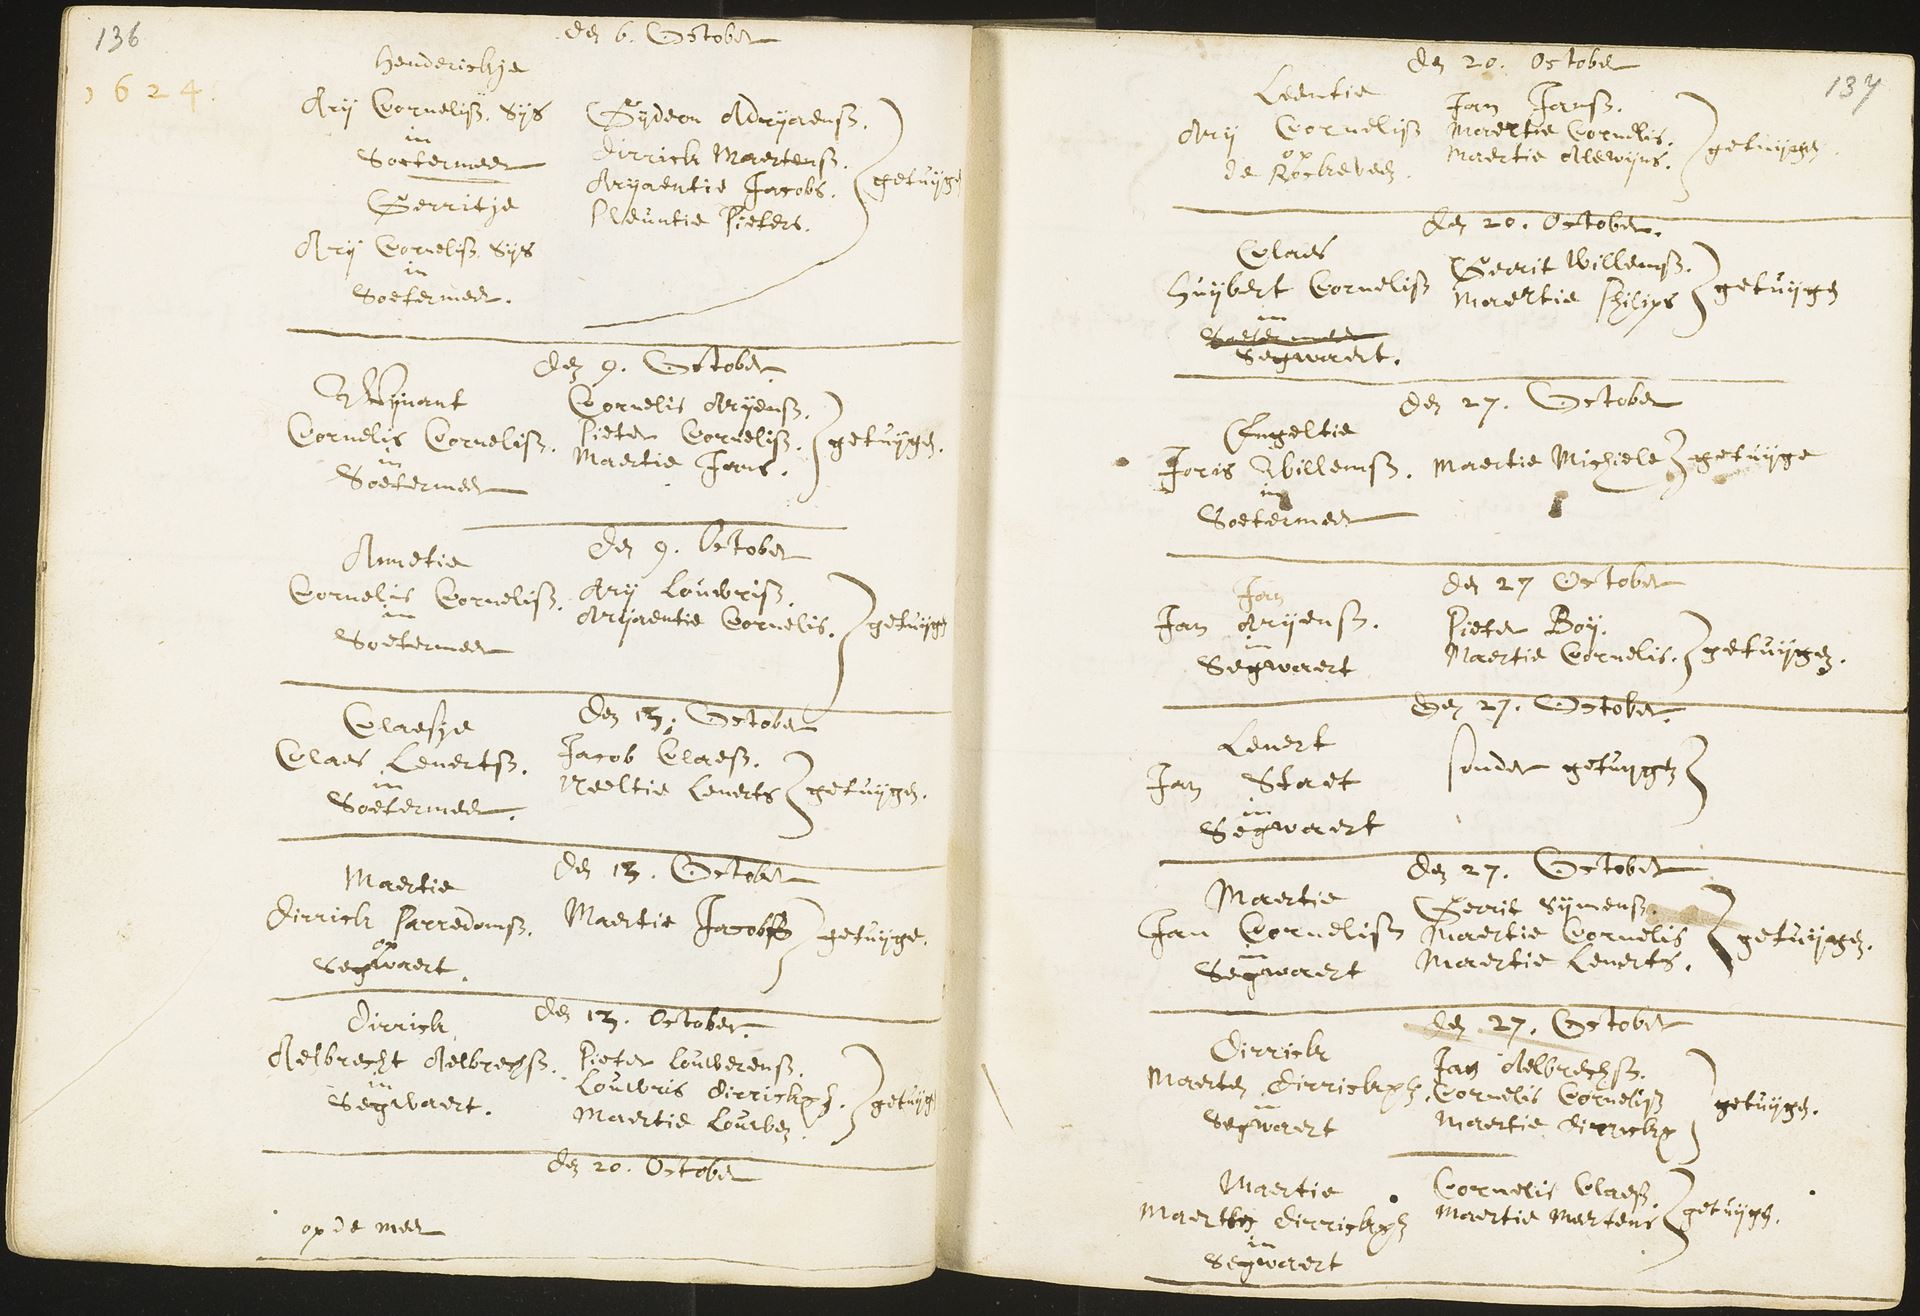 136
1624.
den 6. October
Henderickje
Ary Cornelisz. Sijs
in
Soetermeer
Gerritje
Ary Cornelisz. Sijs
in
Soetermeer.
Gijdeon Adryaensz.
Dirrick Maertensz.
Aryaentie Jacobs.
Pleuntie Pieters.
getuijgen
den 9. October
Wijnant
Cornelis Cornelisz.
in
Soetermeer
Cornelis Aryensz.
Pieter Cornelisz.
Maertie Jans.
getuijgen.
den 9. October
Annetie
Cornelis Cornelisz.
in
Soetermeer
Ary Louwrisz.
Aryaentie Cornelis.
getuijgen
den 13. October
Claesje
Claes Lenertsz.
in
Soetermeer.
Jacob Claesz.
Neeltie Lenerts
getuijgen.
den 13. October
Maertie
Dirrick Parredomsz.
op
Segwaert.
Maertie Jacobs
getuijge.
den 13. October.
Dirrick
Aelbrecht Aelbrechsz.
in
Segwaert.
Pieter Louwerensz.
Louwris Dirrickxz.
Maertie Louwen.
getuijgen
den 20. October
op de meer
137
den 20. October
Leentie
Ary Cornelisz
op
de Rockeveen.
Jan Jansz.
Maertie Cornelis.
Maertie Alewijns.
getuijgen.
den 20. October.
Claes
Huijbert Cornelisz
in
Soetermeer
Segwaert.
Gerrit Willemsz.
Maertie Philips
getuijgen
den 27. October
Engeltie
Joris Willemsz.
in
Soetermeer
Maertie Michiels
getuijge
den 27 October
Jan
Jan Aryensz.
in
Segwaert
Pieter Boy.
Maertie Cornelis.
getuijgen.
den 27. October.
Lenert
Jan Staet
in
Segwaert
sonder getuijgen
den 27. October
Maertie
Jan Cornelisz
in
Segwaert
Gerrit Sijmensz.
Maertie Cornelis
Maertie Lenerts.
getuijgen.
den 27. October
Dirrick
Maerten Dirrickxz.
in
Segwaert
Jan Aelbrechsz.
Cornelis Cornelisz
Maertie Dirrickx
getuijgen.
Maertie
Maerten Dirrickxz
in
Segwaert
Cornelis Claesz.
Maertie Mertens
getuijgen.